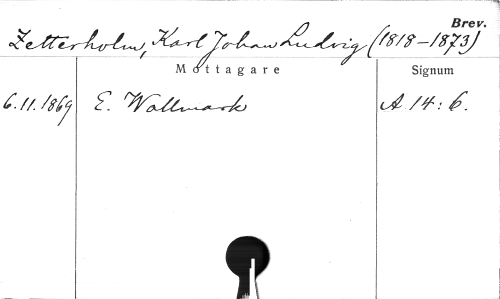 Brev.
Zetterholm, Karl Johan Ludvig (1818-1873)
Mottagare Signum
6.11.1869 E. Wallmark A 14:6.